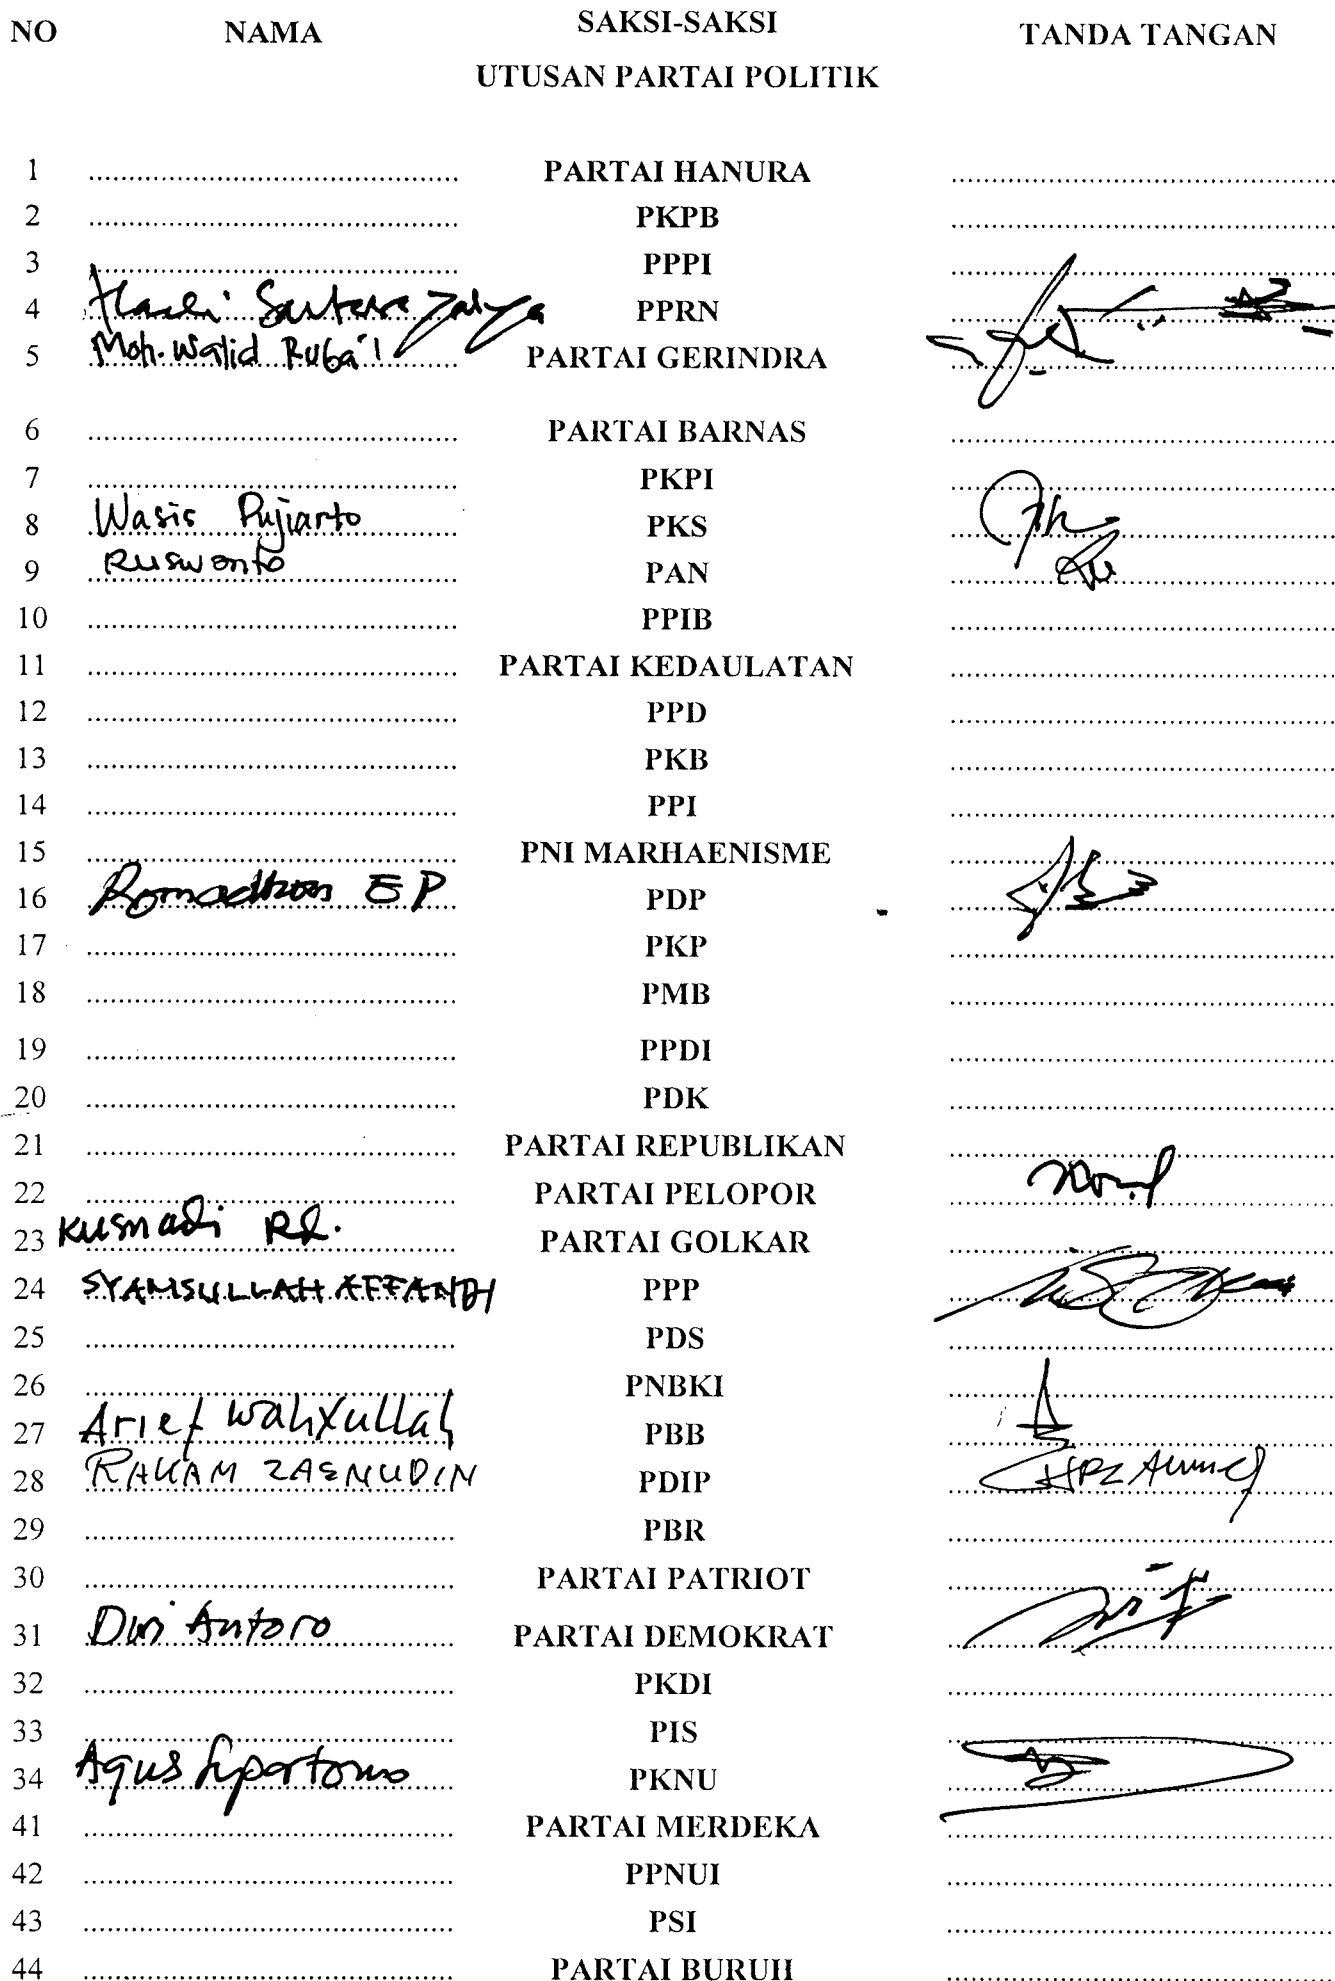 NO NAMA SAKSI-SAKSI TANDA TANGAN
UTUSAN PARTAI POLITIK
1 ........................................ PARTAI HANURA ........................................
2 ........................................ PKPB ........................................
3 ........................................ PPPI ........................................
4 PPRN
5 Moh. Walid Ruba'i PARTAI GERINDRA
6 ........................................ PARTAI BARNAS ........................................
7 ........................................ PKPI ........................................
8 Wasis Pujiarto PKS
9 Ruswanto PAN
10 ........................................ PPIB ........................................
11 ........................................ PARTAI KEDAULATAN ........................................
12 ........................................ PPD ........................................
13 ........................................ PKB ........................................
14 ........................................ PPI ........................................
15 ........................................ PNI MARHAENISME ........................................
16 Romadhon EP PDP
17 ........................................ PKP ........................................
18 ........................................ PMB ........................................
19 ........................................ PPDI ........................................
20 ........................................ PDK ........................................
21 ........................................ PARTAI REPUBLIKAN ........................................
22 ........................................ PARTAI PELOPOR ........................................
23 Kusmadi Rd. PARTAI GOLKAR
24 SYAMSULLAH AFFANDI PPP
25 ........................................ PDS ........................................
26 ........................................ PNBKI ........................................
27 Arief Wahyullah PBB
28 RAKAM ZAENUDIN PDIP
29 ........................................ PBR ........................................
30 ........................................ PARTAI PATRIOT ........................................
31 Dwi Antoro PARTAI DEMOKRAT
32 ........................................ PKDI ........................................
33 ........................................ PIS ........................................
34 Agus PKNU
41 ........................................ PARTAI MERDEKA ........................................
42 ........................................ PPNUI ........................................
43 ........................................ PSI ........................................
44 ........................................ PARTAI BURUH ........................................